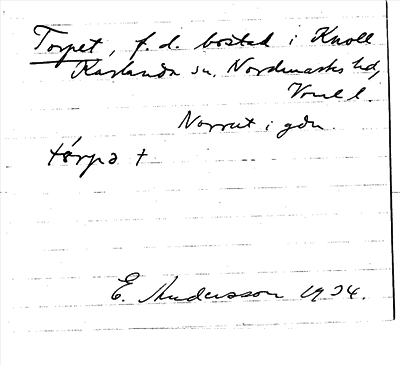 Torpet, f.d. bostad i Knoll
Karlanda sn, Nordmarks hd,
Vrml l.
Norrut i gdn.
tǿrpə †
E. Andersson 1934.